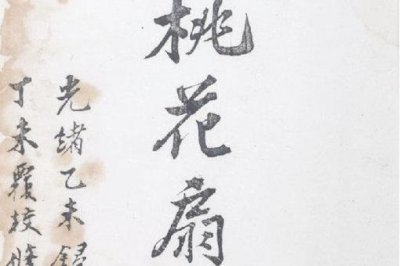 桃花扇
光緒乙未録
丁未覆校